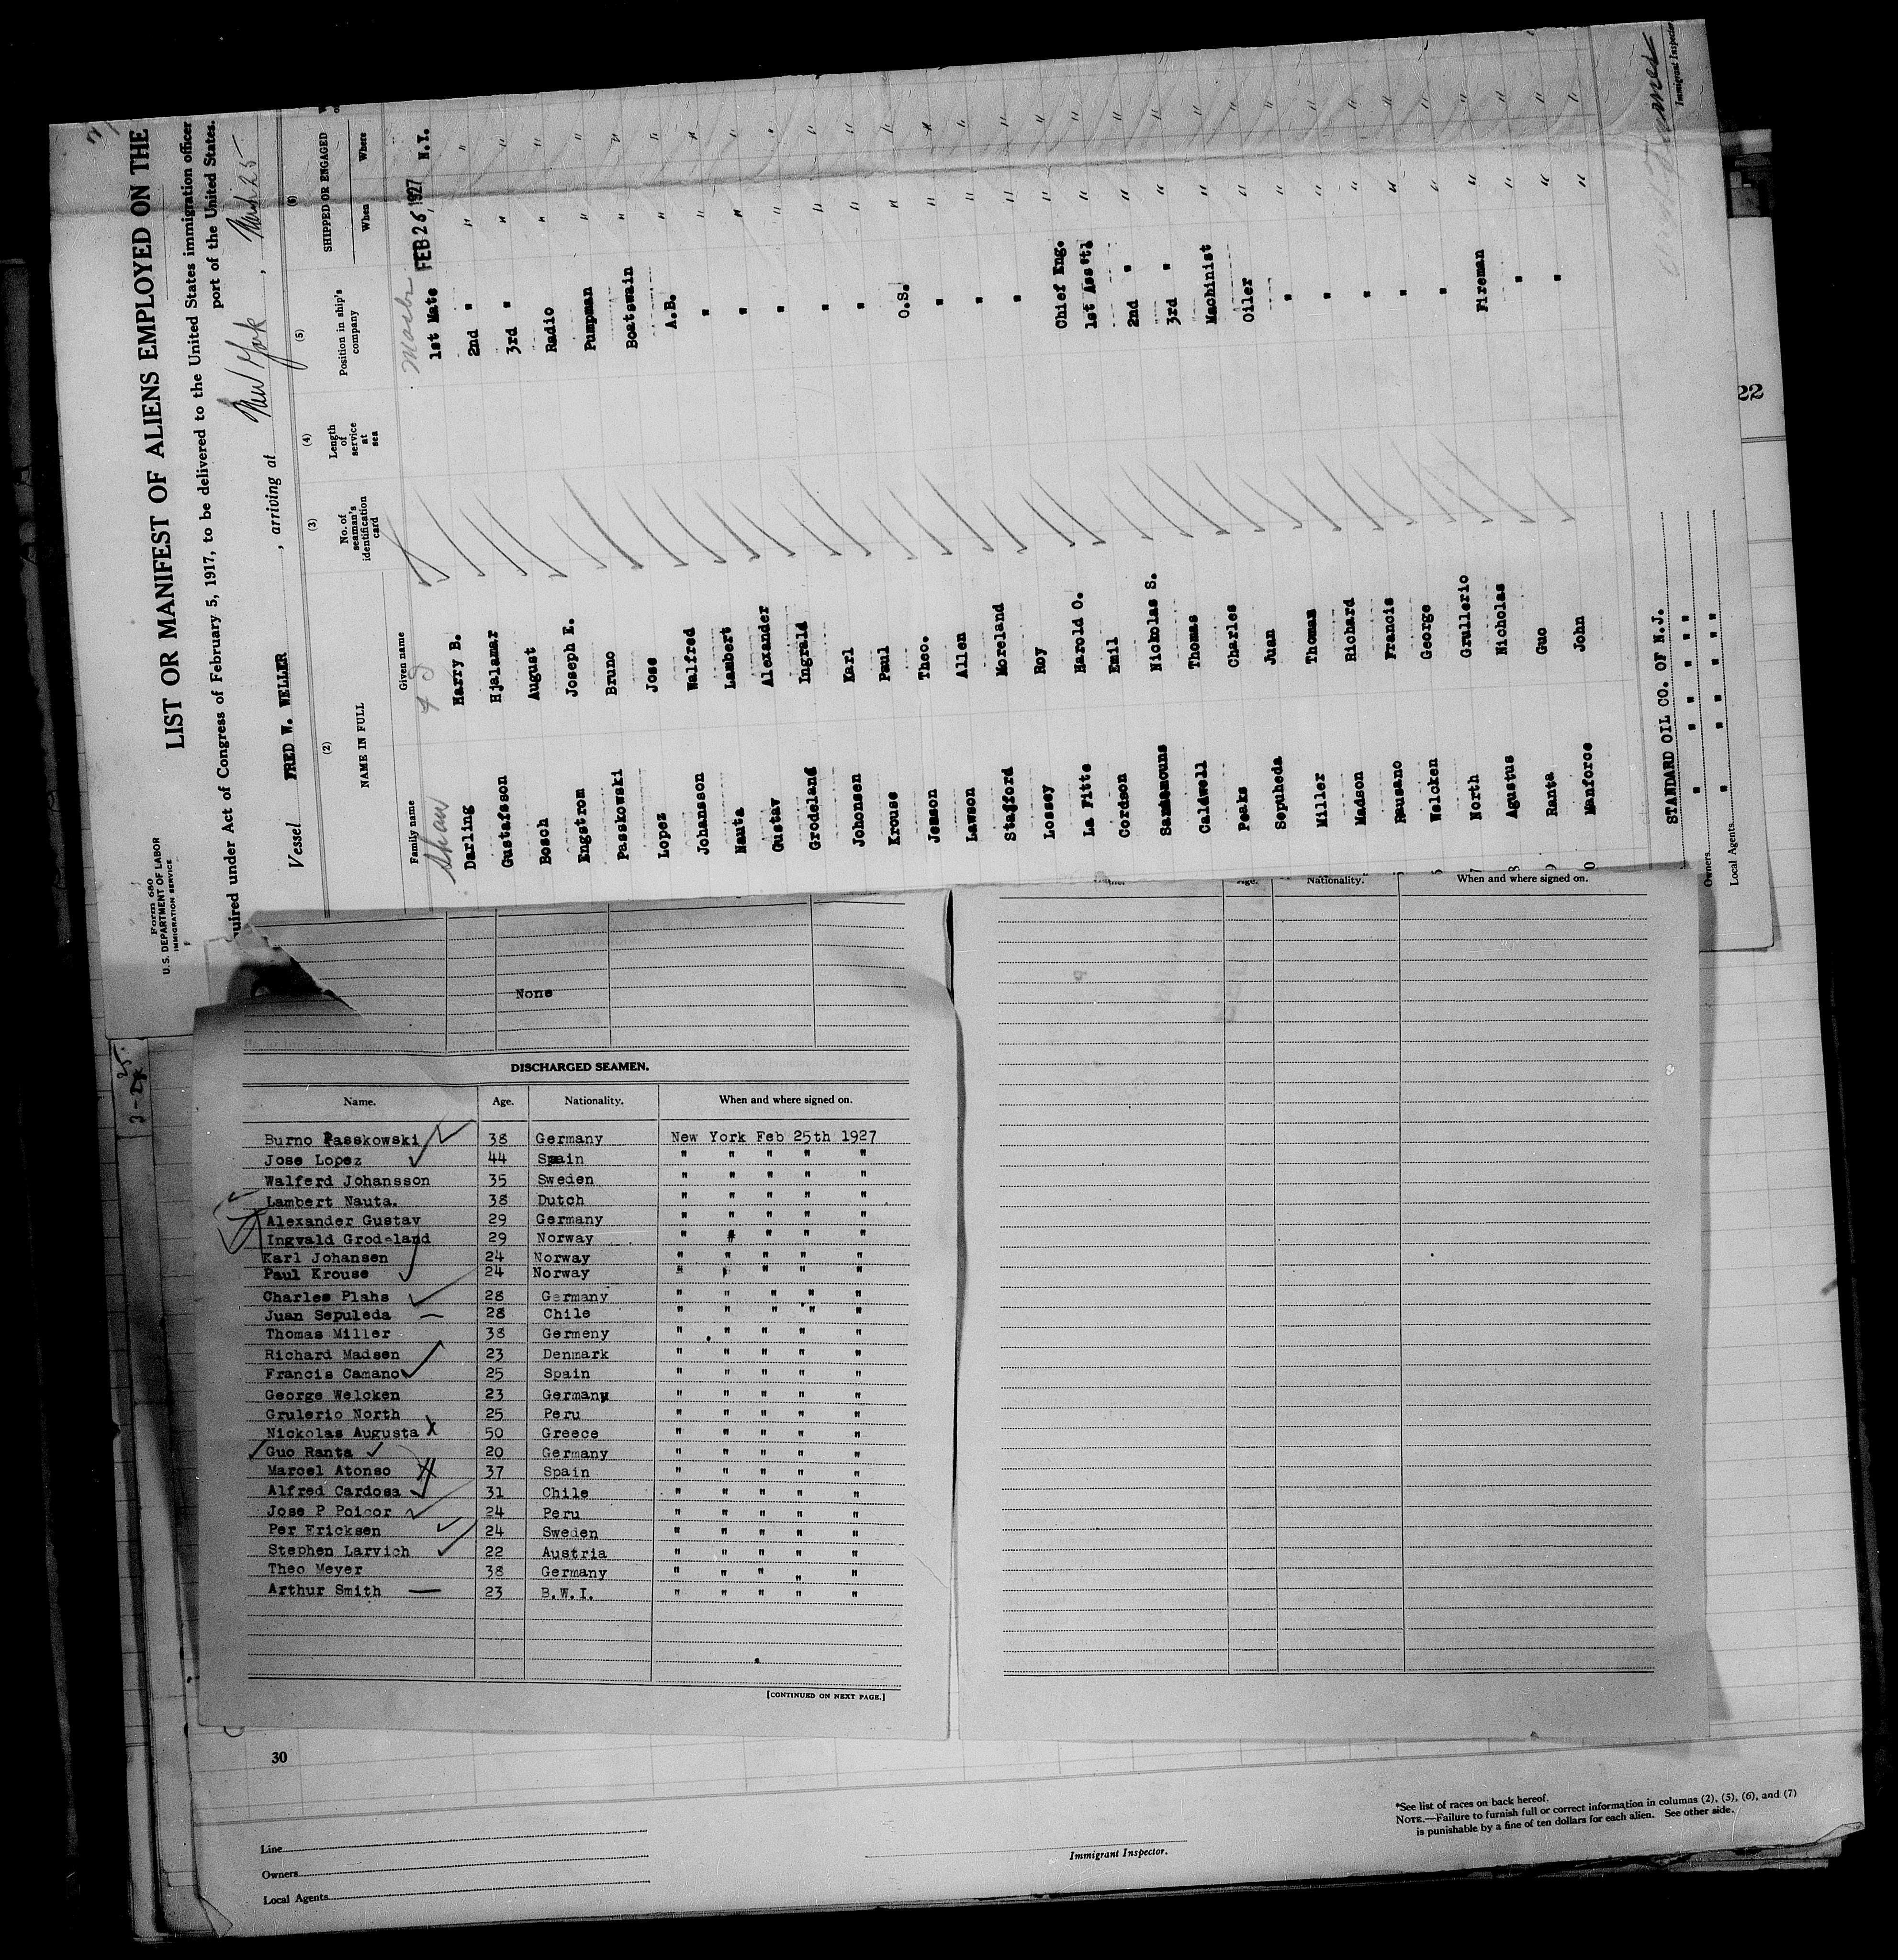 Form 680
U. S. DEPARTMENT OF LABOR
IMMIGRATION SERVICE
LIST OR MANIFEST OF ALIENS EMPLOYED ON THE
uired under Act of Congress of February 5, 1917, to be delivered to the United States immigration officer
port of the United States.
Vessel FRED W. WELLER , arriving at New York , March 25
(2) (3) (4) (5) (6)
NAME IN FULL No. of seaman's identification card Length of service at sea Position in ship's company SHIPPED OR ENGAGED
Family name Given name When Where
Shaw Master
Darling Harry B. 1st Mate FEB 26 1927 N.Y.
Gustafsson Hjalamar 2nd " " "
Bosch August 3rd " " "
Engstrom Joseph E. Radio " "
Passkowski Bruno Pumpman " "
Lopez Jose Boatswain " "
Johansson Walfred A.B. " "
Nauta Lambert " " "
Gustav Alexander " " "
Grodeland Ingrald " " "
Johonsen Karl " " "
Krouse Paul " " "
Jemson Theo. O.S. " "
Lawson Allen " " "
Stafford Moreland " " "
Lossey Roy " " "
La Fitte Harold O. Chief Eng. " "
Cordson Emil 1st Ass "tl " "
Sammamouns Nickolas S. 2nd " " "
Caldwell Thomas 3rd " " "
Peaks Charles Machinist " "
Sepuheda Juan Oiler " "
Miller Thomas " " "
Madson Richard " " "
Rausano Francis " " "
Welcken George " " "
North Grullerio " " "
Agustus Nicholas Fireman " "
Ranta Guo " " "
Manforce John " " "
STANDARD OIL CO. OF N.J.
Owners " " " " " "
Local Agents " " " " "
Immigrant Inspector
22
3-24 25.
Age. Nationality. When and where signed on.
None
DISCHARGED SEAMEN.
Name. Age. Nationality. When and where signed on.
Burno Passkowski 38 Germany New York Feb 25th 1927
Jose Lopez 44 Spain " " " " "
Walferd Johansson 35 Sweden " " " " "
Lambert Nauta. 38 Dutch " " " " "
Alexander Gustav 29 Germany " " " " "
Ingvald Grodeland 29 Norway " # " " "
Karl Johansen 24 Norway " " " " "
Paul Krouse 24 Norway " " " " "
Charles Plahs 28 Germany " " " " "
Juan Sepuleda 28 Chile " " " " "
Thomas Miller 38 Germeny " " " " "
Richard Madsen 23 Denmark " " " " "
Francis Camano 25 Spain " " " " "
George Welcken 23 Germany " " " " "
Grulerio North 25 Peru " " " " "
Nickolas Augusta X 50 Greece " " " " "
Guo Ranta 20 Germany " " " " "
Marcel Atonso 37 Spain " " " " "
Alfred Cardosa 31 Chile " " " " "
Jose P Poicor 24 Peru " " " " "
Per Ericksen 24 Sweden " " " " "
Stephen Larvich 22 Austria " " " " "
Theo Meyer 38 Germany " " " " "
Arthur Smith 23 B.W.I. " " " " "
[CONTINUED ON NEXT PAGE.]
30
Line
Owners
Local Agents
Immigrant Inspector.
*See list of races on back hereof.
NOTE.—Failure to furnish full or correct information in columns (2), (5), (6), and (7)
is punishable by a fine of ten dollars for each alien. See other side.